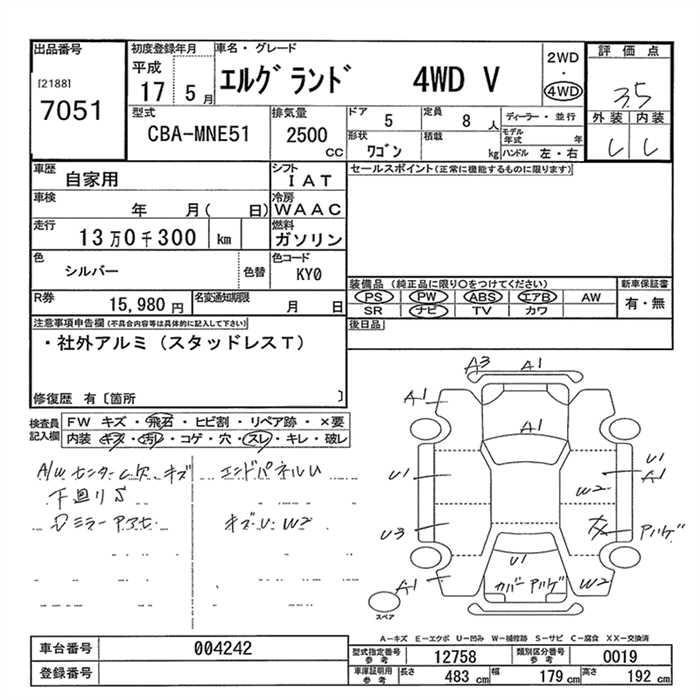 出品番号
[2188]
7051
初度登録年月
平成
17 5 月
車名・グレード
エルグランド 4WD V
2WD
・
4WD
評価点
3.5
外装 内装
型式
CBA-MNE51
排気量
2500
CC
ドア 5
定員 8 人
ディーラー・並行
形状 ワゴン
積載 kg
モデル年式 年
ハンドル 左・右
車歴
自家用
シフト
IAT
車検
年 月( 日)
冷房
WAAC
走行
13万0千300 km
燃料
ガソリン
色
シルバー
色替
色コード
KY0
R券
15,980 円
名変通知期限
月 日
セールスポイント(正常に機能するものに限ります)
装備品 (純正品に限り○をつけてください)
新車保証書
PS PW ABS エアB AW
SR ナビ TV カワ
有・無
後日品
注意事項申告欄(不具合内容等は具体的に記入して下さい)
・社外アルミ(スタッドレスT)
修復歴 有〔箇所 〕
検査員
記入欄
FW キズ・飛石・ヒビ割・リペア跡・×要
内装 キズ・汚レ・コゲ・穴・スレ・キレ・破レ
A/W センターC欠 キズ
下廻りS
エンドパネルU
キズU W2
A3 A1
A1
A1
U1
U1
A1
W2
U3
アルゲ
U1
A1
カバーアルゲ
W2
スペア
A-キズ E-エクボ U-凹み W-補修跡 S-サビ C-腐食 XX-交換済
車台番号
004242
登録番号
型式指定番号
参考
12758
類別区分番号
参考
0019
車庫証明用
参考
長さ 483 cm
幅 179 cm
高さ 192 cm